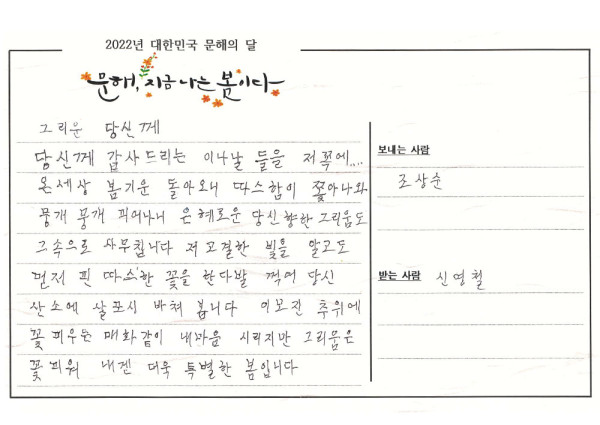 2022년 대한민국 문해의 달
문해, 지금 나는 봄이다
그리운 당신께
당신께 갑사드리는 이나날 들을 저쪽에....
온세상 봄기운 돌아오니 따스함이 쫓아나와
뭉개 뭉개 피어나니 은혜로운 당신향한 그리움도
그속으로 사무칩니다 저고결한 빛을 알고도
먼저 핀 따스한 꽃을 한다발 꺽여 당신
산소에 살포시 바쳐 봅니다 이모진 추위에
꽃피우는 매화같이 내마음 시리지만 그리움은
꽃피워 내겐 더욱 특별한 봄입니다
보내는 사람
조상순
받는 사람 신영철